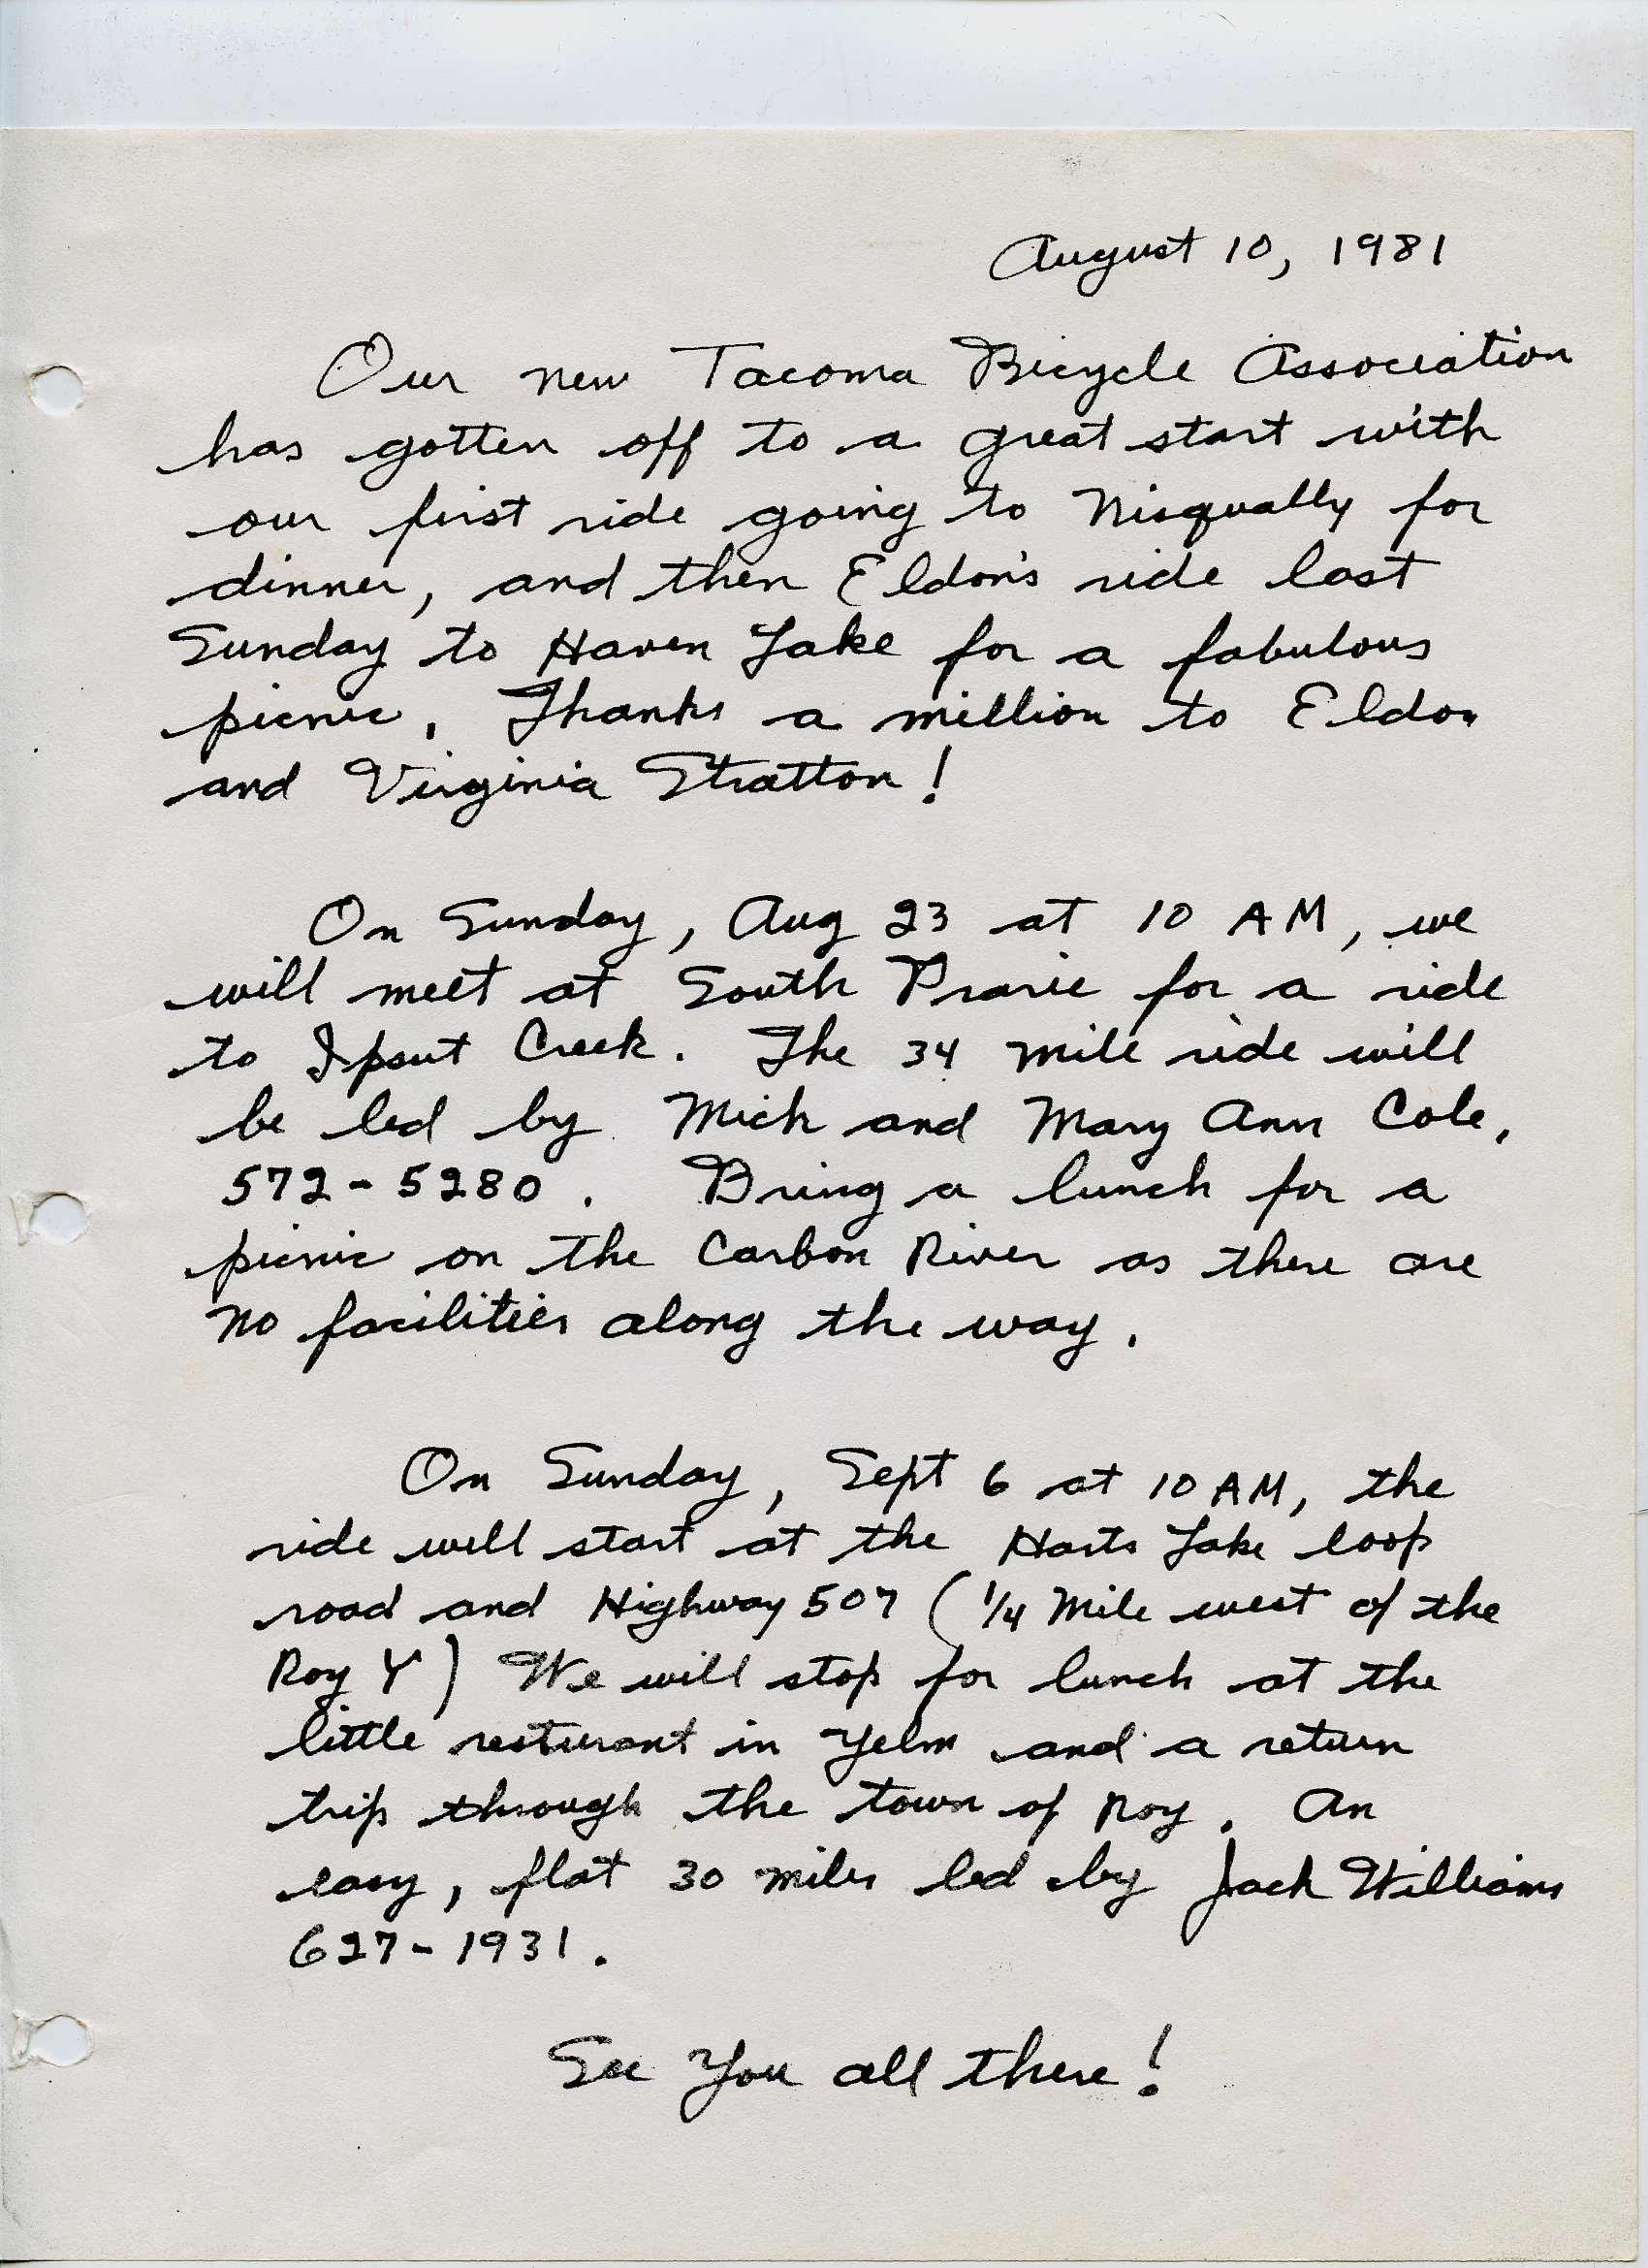 August 10, 1981
Our new Tacoma Bicycle Association
has gotten off to a great start with
our first ride going to Nisqually for
dinner, and then Eldon's ride last
Sunday to Haven Lake for a fabulous
picnic. Thanks a million to Eldon
and Virginia Stratton!
On Sunday, Aug 23 at 10 AM, we
will meet at South Prarie for a ride
to Ipsut Creek. The 34 mile ride will
be led by Mich and Mary Ann Cole,
572-5280. Bring a lunch for a
picnic on the Carbon River as there are
no facilities along the way.
On Sunday, Sept 6 at 10 AM, the
ride will start at the Harts Lake loop
road and Highway 507 (1/4 Mile west of the
Roy Y) We will stop for lunch at the
little resturant in Yelm and a return
trip through the town of Roy. An
easy, flat 30 miles led by Jack Williams
627-1931.
See You all there!